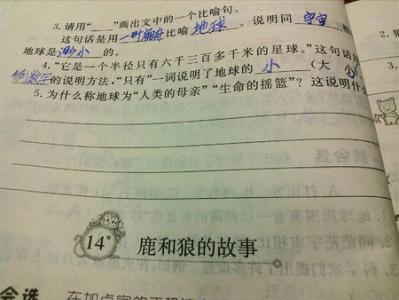 3.请用“　”画出文中的一个比喻句。
这句话是用一叶扁舟比喻地球。说明同宇宙
地球是渺小的。
4.“它是一个半径只有六千三百多千米的星球。”这句话
列数字的说明方法。“只有”一词说明了地球的小（大
5.为什么称地球为“人类的母亲”“生命的摇篮”？这说明什
14*
鹿和狼的故事
会选